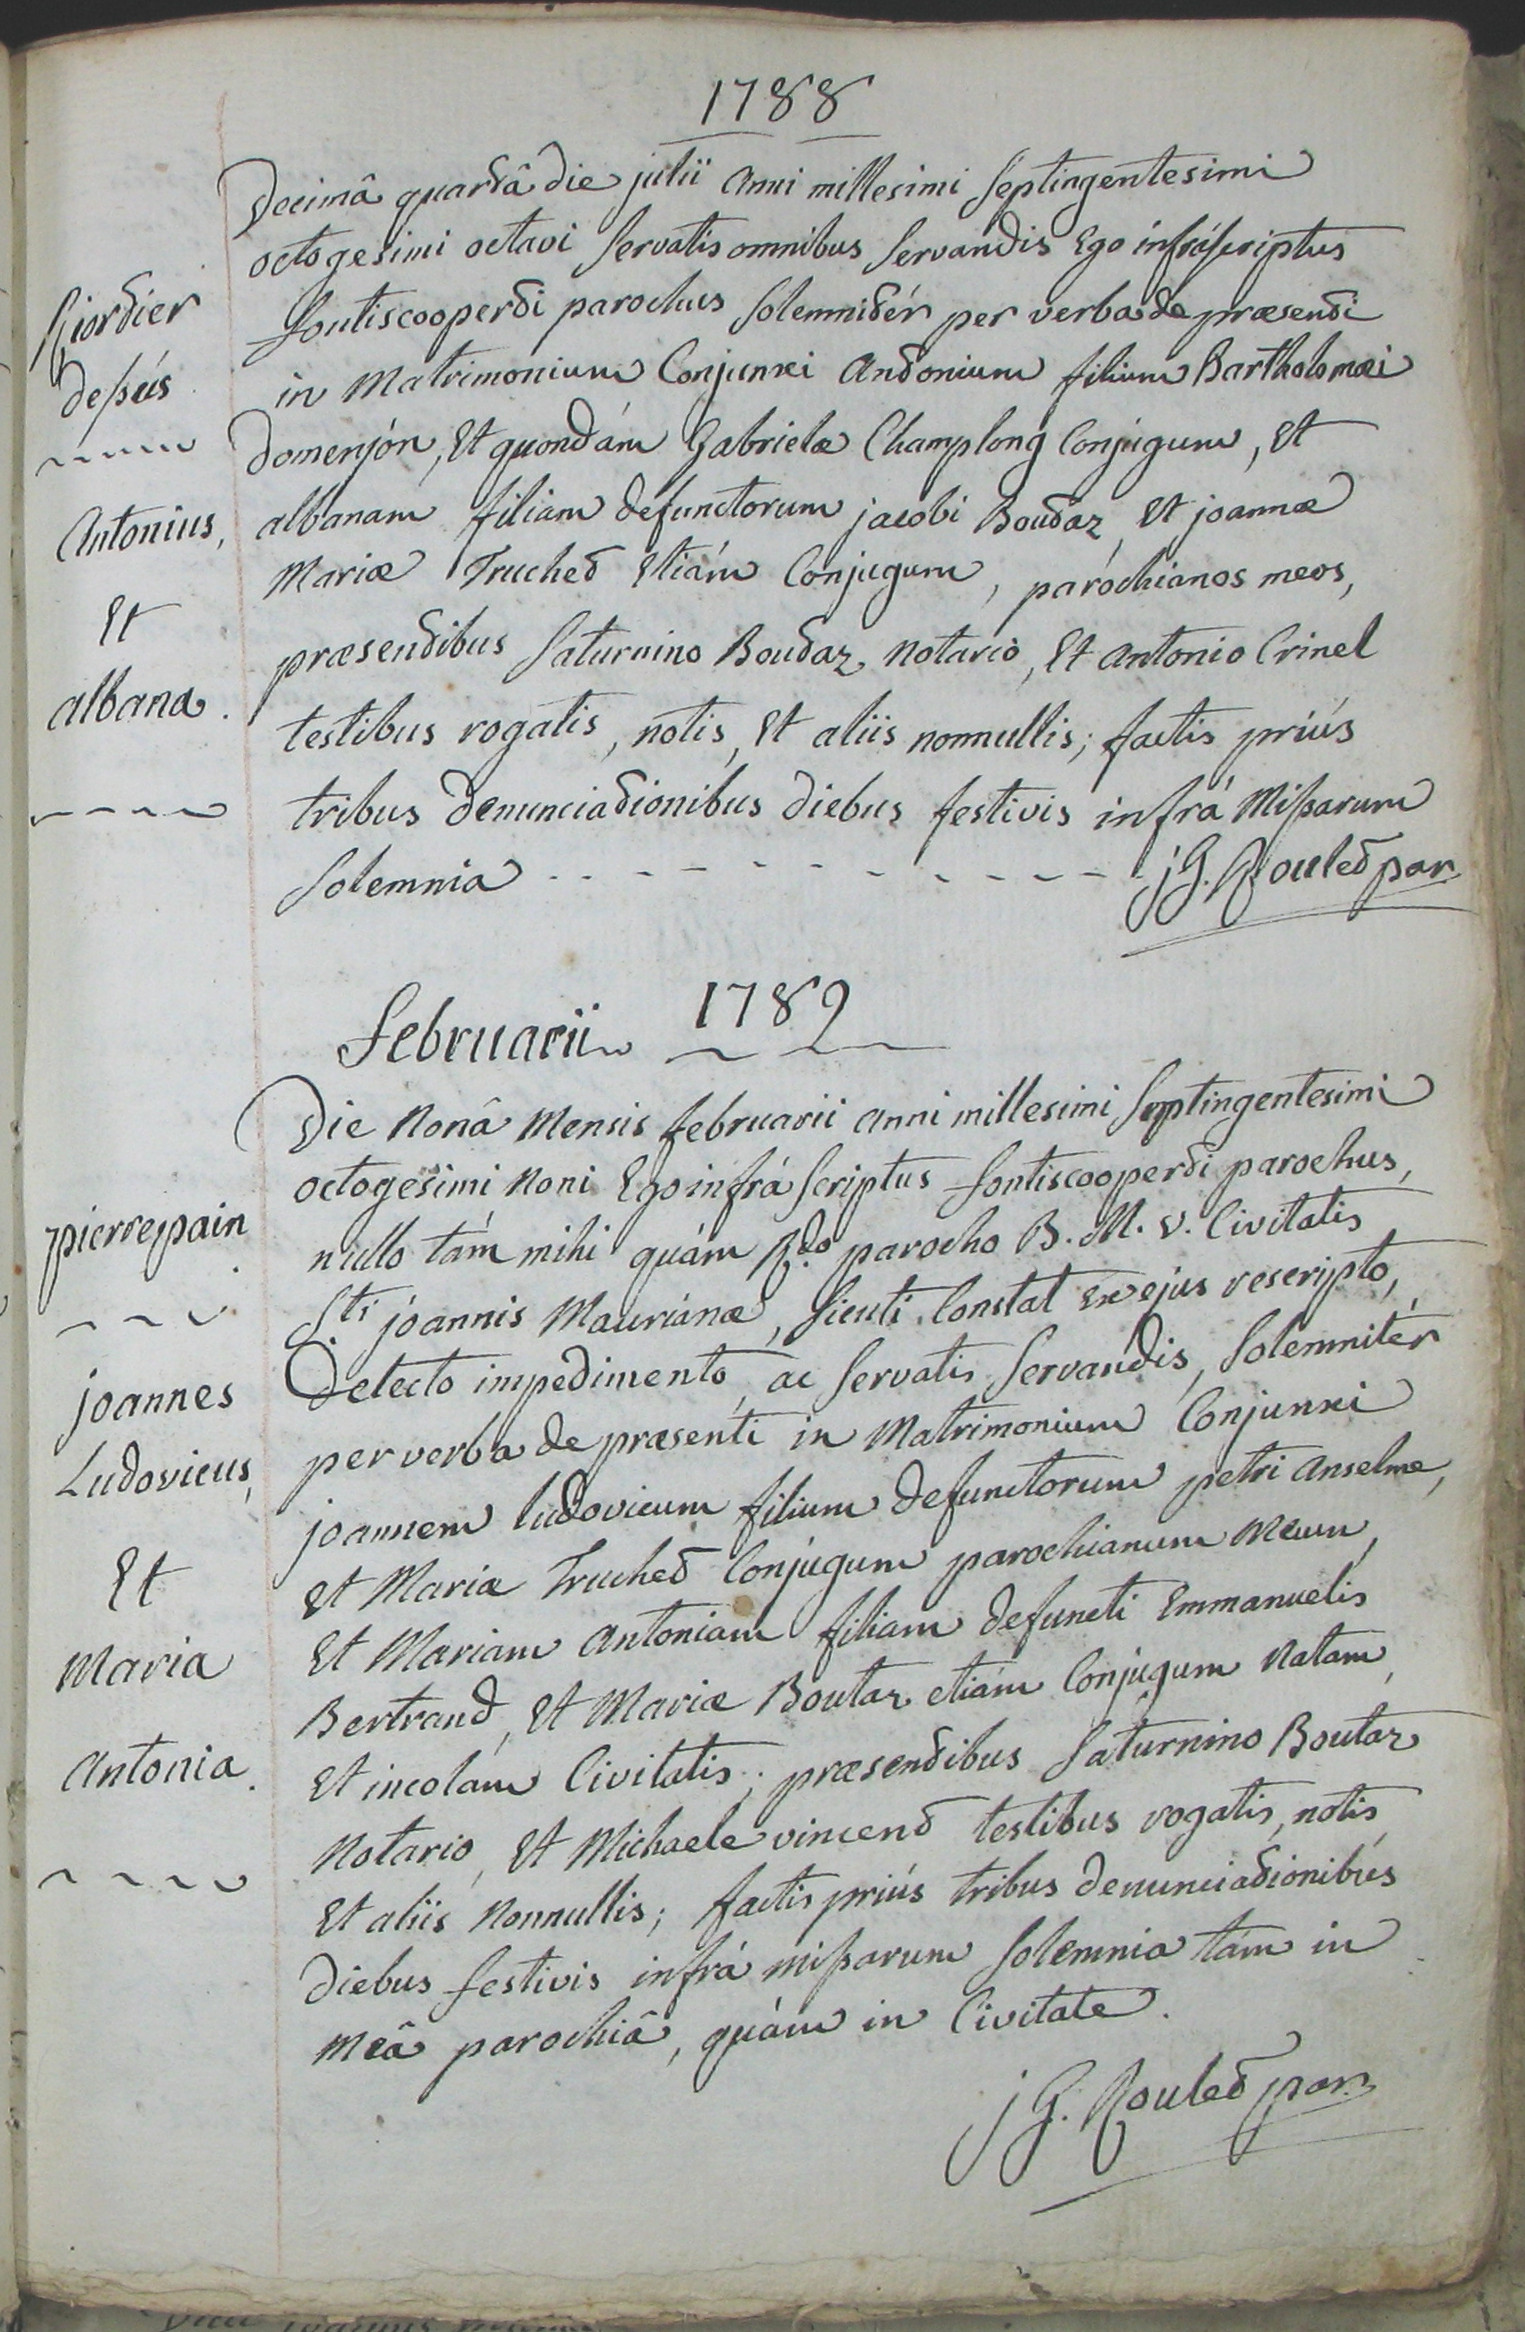 1788
Decimâ quartâ die julii anni millesimi septingentesimi
octogesimi octavi servatis omnibus servandis Ego infráscriptus
fontiscooperti parochus solemnitér per verba de præsenti
in Matrimonium Conjunxi Antonium filium Bartholomæi
domenjón, Et quondám Gabrielæ Champlong Conjugum, Et
albanam filiam defunctorum jacobi Boudaz, Et joannæ
Mariæ Truchet Etiám Conjugum, paróchianos meos,
præsentibus Saturnino Boutaz notario, Et Antonio Crinel
testibus rogatis, notis, Et aliis nonnullis; factis priús
tribus denunciationibus diebus festivis infrá Missarum
solemnia - - - - - - - - - - - jG. Roulet par
dessús
Antonius,
Et
albana.
februarii 1789
Die Nonâ Mensis februarii anni millesimi septingentesimi
octogesimi Noni Ego infrá scriptus fontiscooperti parochus,
nullo tám mihi quám Rdo parocho B. M. V. Civitatis
Sti joannis Mauriánæ, sicuti Constat Ex ejus rescripto,
detecto impedimento, ac servatis servandis, solemnitér
per verba de præsenti in Matrimonium Conjunxi
joannem ludovicum filium defunctorum petri Anselme,
Et Mariæ Truchet Conjugum parochianum Meum,
Et Mariam Antoniam filiam defuncti Emmanuelis
Bertrand, Et Mariæ Boutaz etiám Conjugum Natam,
Et incolám Civitatis; præsentibus Saturnino Boutaz
Notario, Et Michaele vincent testibus rogatis, notis
Et aliis Nonnullis; factis priús tribus denunciationibús
diebus festivis infrá missarum solemnia tám in
Meâ parochiâ, quám in Civitate.
jG. Roulet par.
pierrepain.
joannes
Ludovicus,
Et
Maria
Antonia.